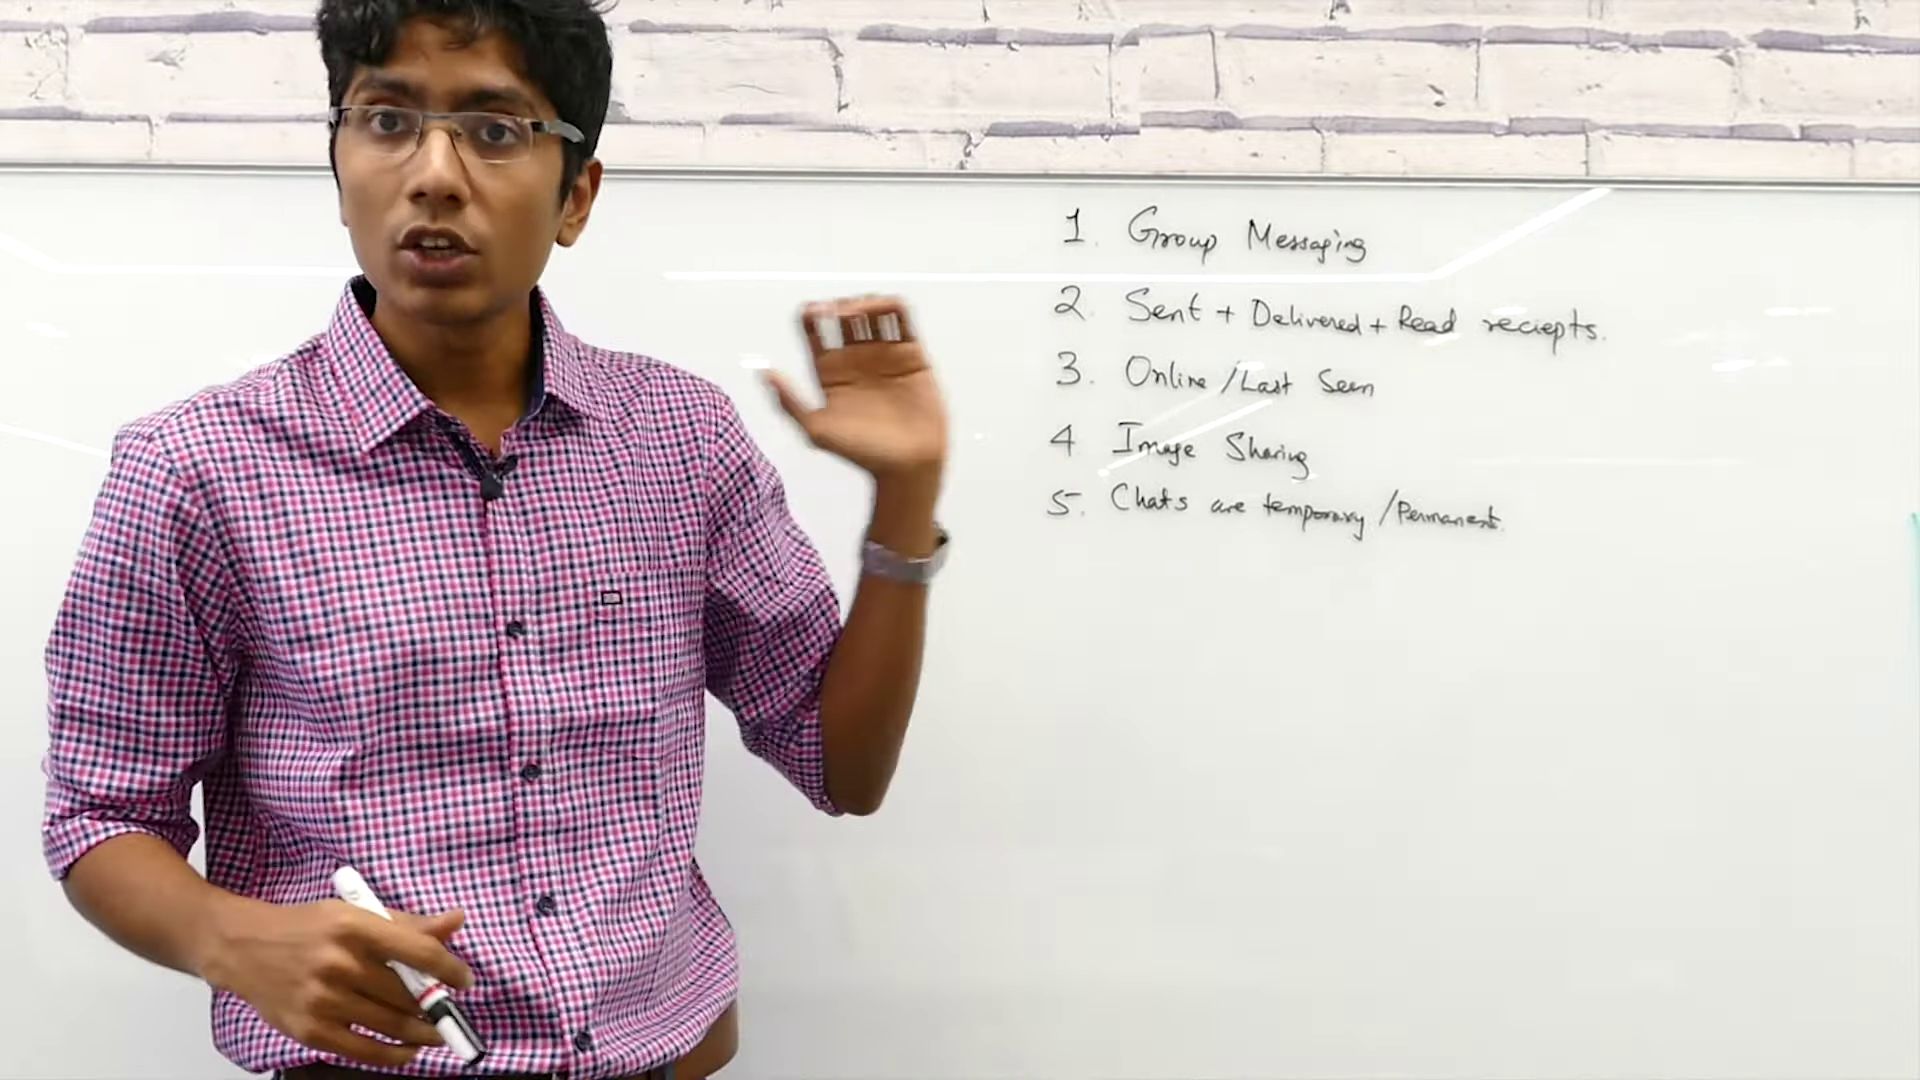 1. Group Messaging
2. Sent + Delivered + Read reciepts.
3. Online / Last Seen
4 Image Sharing
5. Chats are temporary / Permanent.